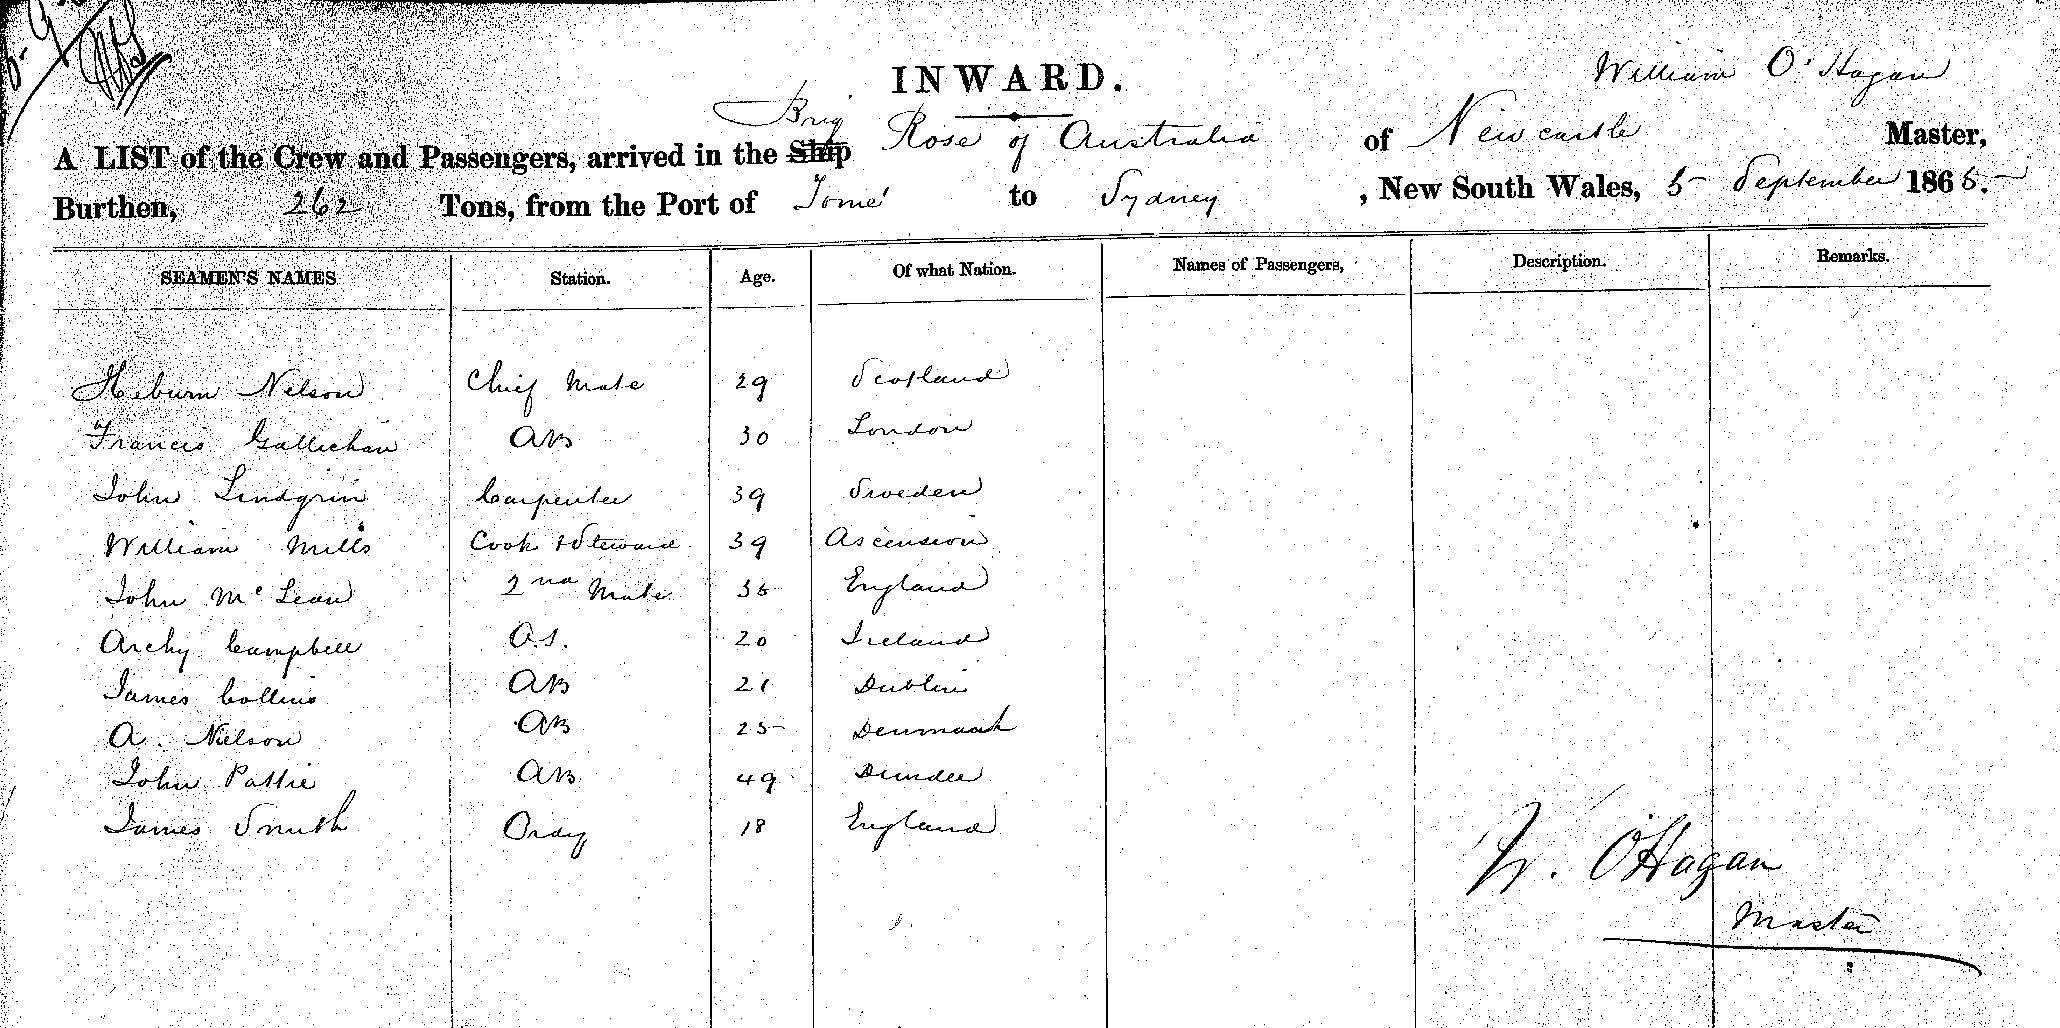 INWARD.
William O'Hagan
A LIST of the Crew and Passengers, arrived in the Ship Brig Rose of Australia of Newcastle Master,
Burthen, 262 Tons, from the Port of Tomé to Sydney, New South Wales, 5 September 1865.
SEAMEN'S NAMES Station. Age. Of what Nation. Names of Passengers, Description. Remarks.
Heburn Nelson Chief Mate 29 Scotland
Francis Gallichan AB 30 London
John Lindgrin Carpenter 39 Sweden
William Mills Cook & Steward 39 Ascension
John McLean 2nd Mate 35 England
Archy Campbell O.S. 20 Ireland
James Collins AB 21 Dublin
A. Nielson AB 25 Denmaark
John Pattie AB 49 Dundee
James Smith Ordy 18 England
W. O'Hagan
Master